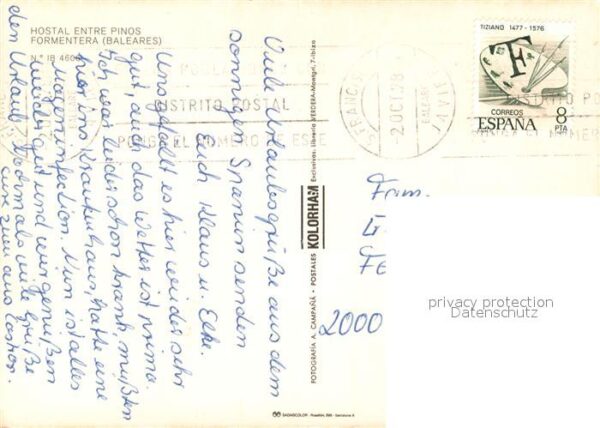 HOSTAL ENTRE PINOS
FORMENTERA (BALEARES)
N.º IB 460
Viele Urlaubsgrüße aus dem
sonnigen Spanien senden
Euch Klaus u. Elke.
Uns gefällt es hier wieder sehr
gut, auch das Wetter ist prima.
Ich war leider schon krank, mußten
hier ins Krankenhaus, hatte eine
Mageninfection. Nun ist alles
wieder gut und wir genießen
den Urlaub. Nochmals viele Grüße
aus
FOTOGRAFÍA A. CAMPAÑÁ - POSTALES KOLORHAM Exclusivas. Librería VERDERA-Montgrí, 7-Ibiza
SADAGCOLOR
DISTRITO POSTAL
PONGA EL NUMERO DE ESTE
S. FRANCISCO JAVIER
20 OCT
BALEARES
TIZIANO 1477 - 1576
F
CORREOS
ESPAÑA
8
PTA
DISTRITO PO
PONGA EL NUMER
Fam.
2000
privacy protection
Datenschutz